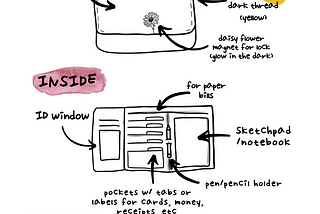 dark thread
(yellow)
daisy flower
magnet for lock
(glow in the dark)
INSIDE
for paper
bills
ID window
Sketchpad
/notebook
pen/pencil holder
pockets w/ tabs or
labels for cards, money,
receipts etc